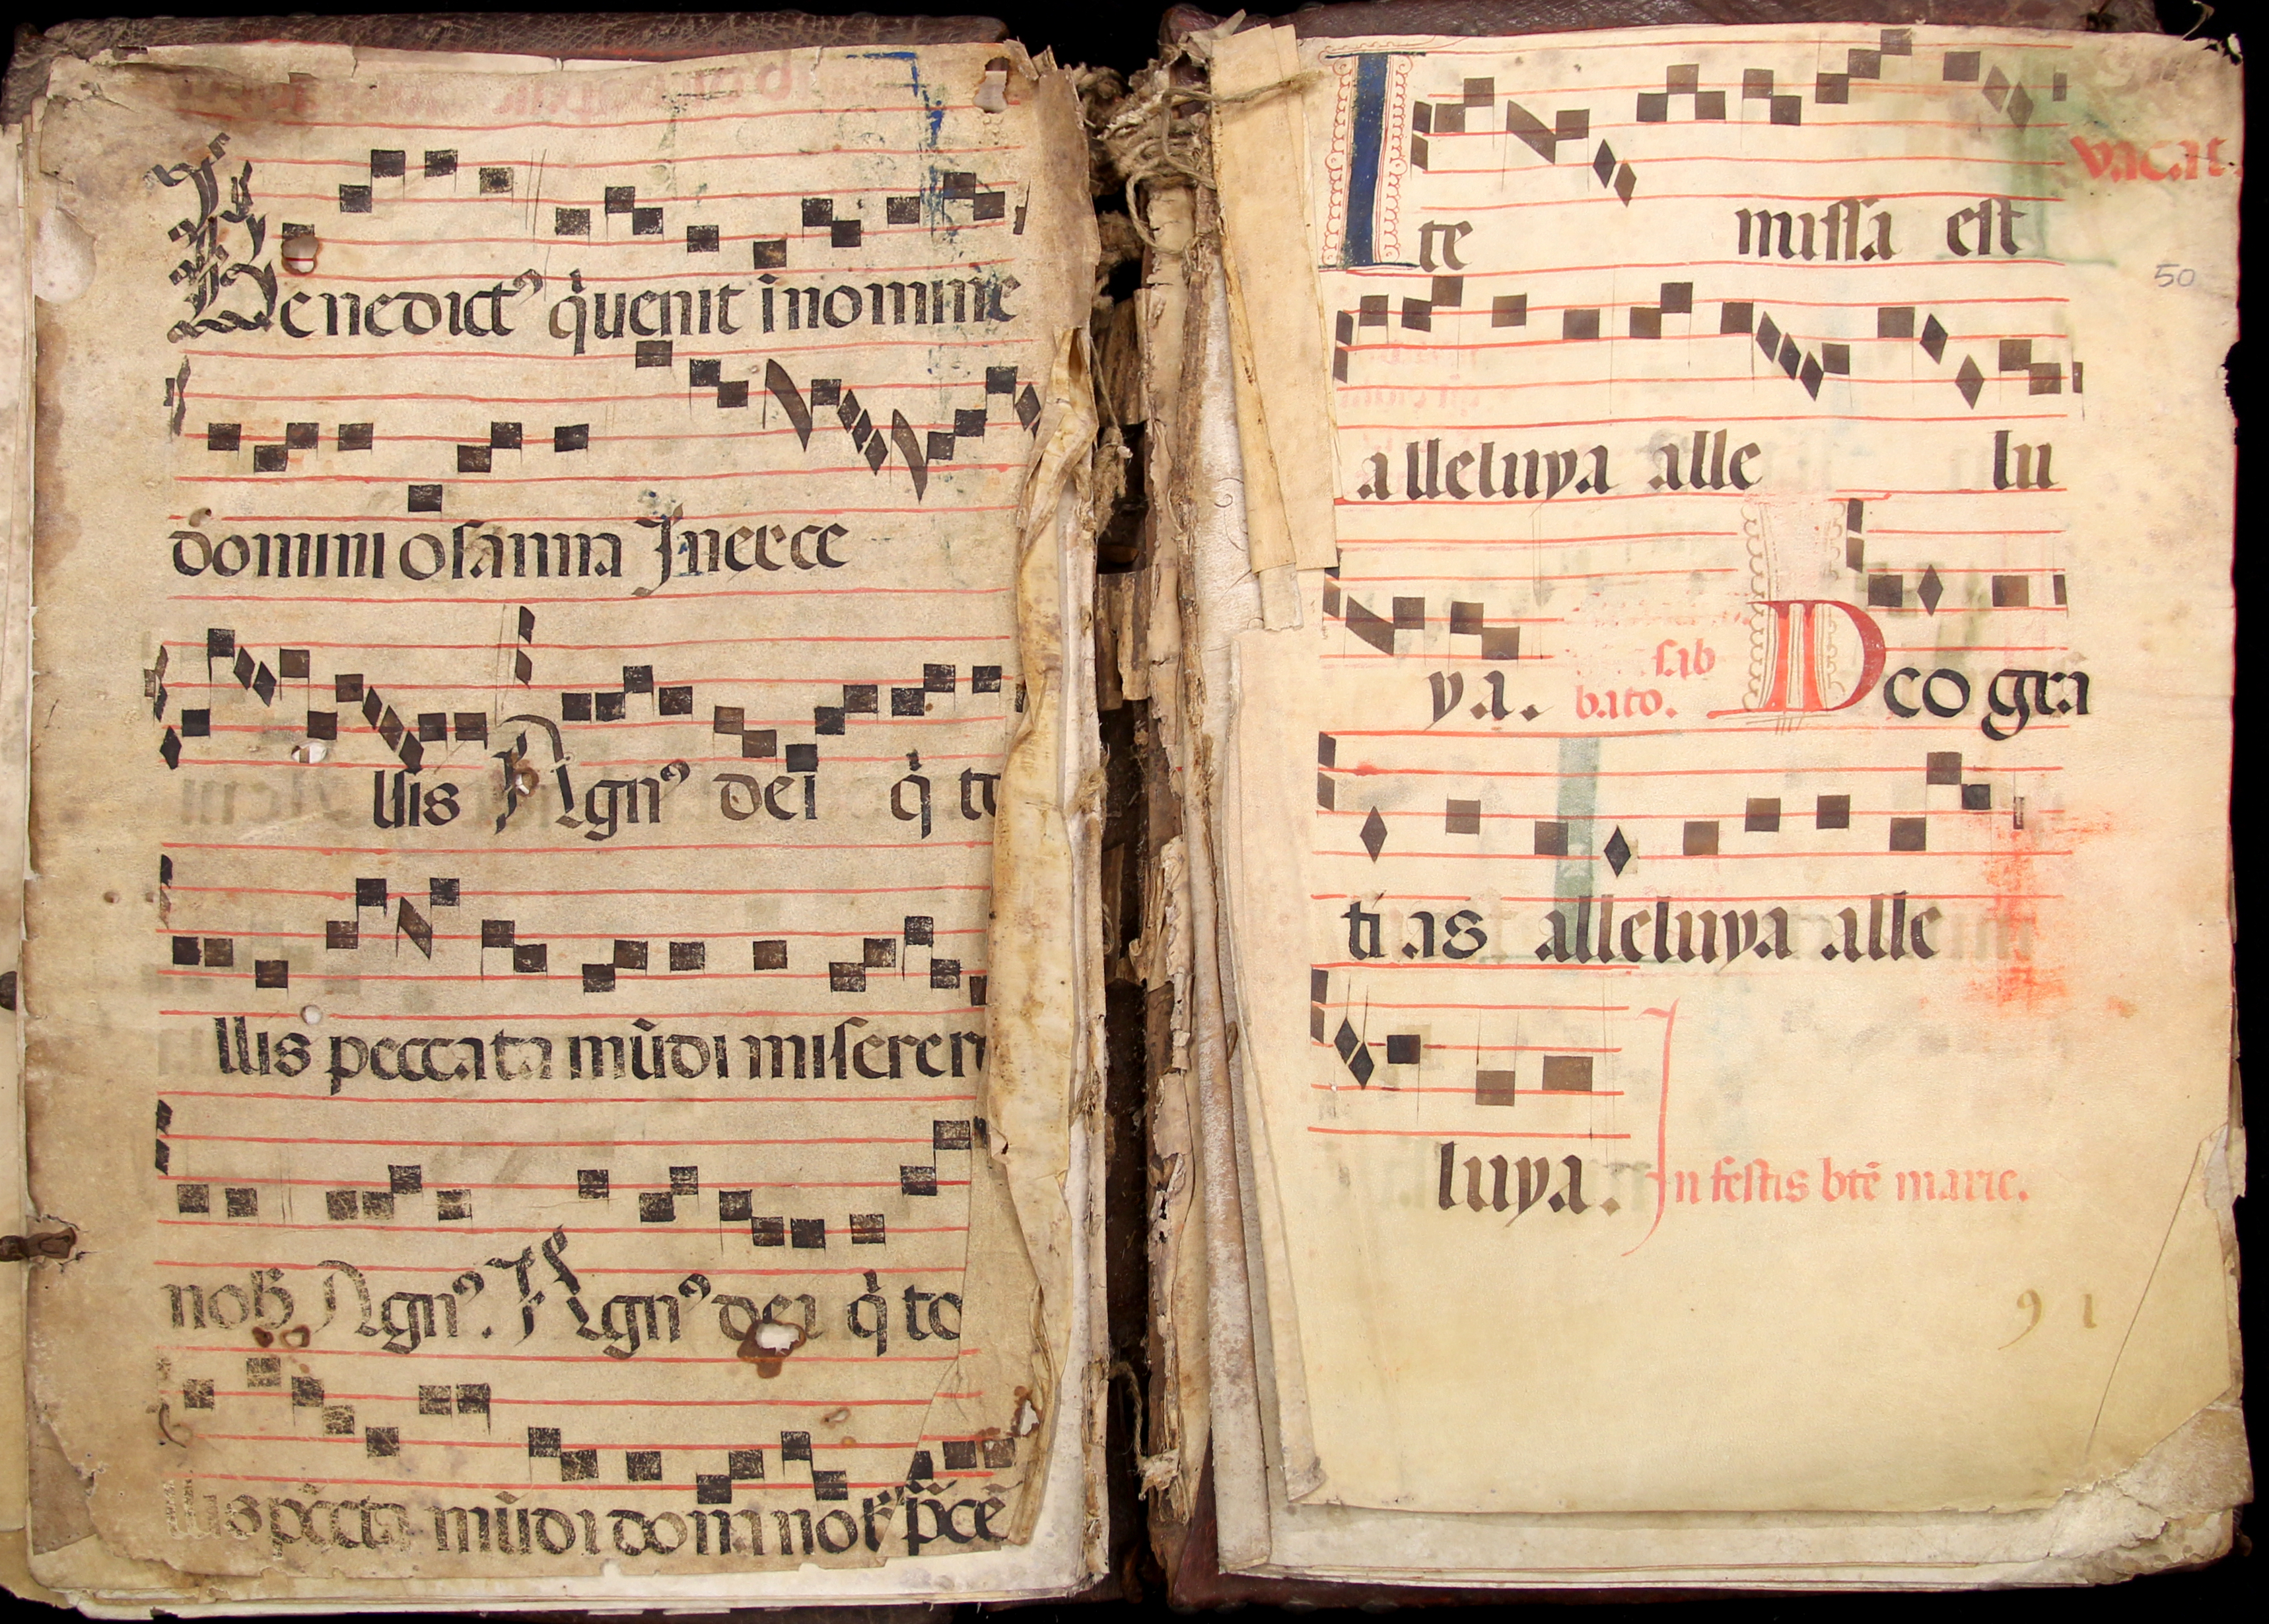 Benedictꝰ q̇ uenit i nomine
domini osanna Jn exce
llsis Agnꝰ dei q̇ to
llis peccata mūdi miserere
nob̄ Agnꝰ. Agnꝰ dei q̇ to
llis pc̄cta mūdi dona nob̄ pācē
vacat.
Ite missa est
50
alleluya alle lu
ya. sab
bato. Deo gra
ti as alleluya alle
luya. Jn festis btē marie.
91